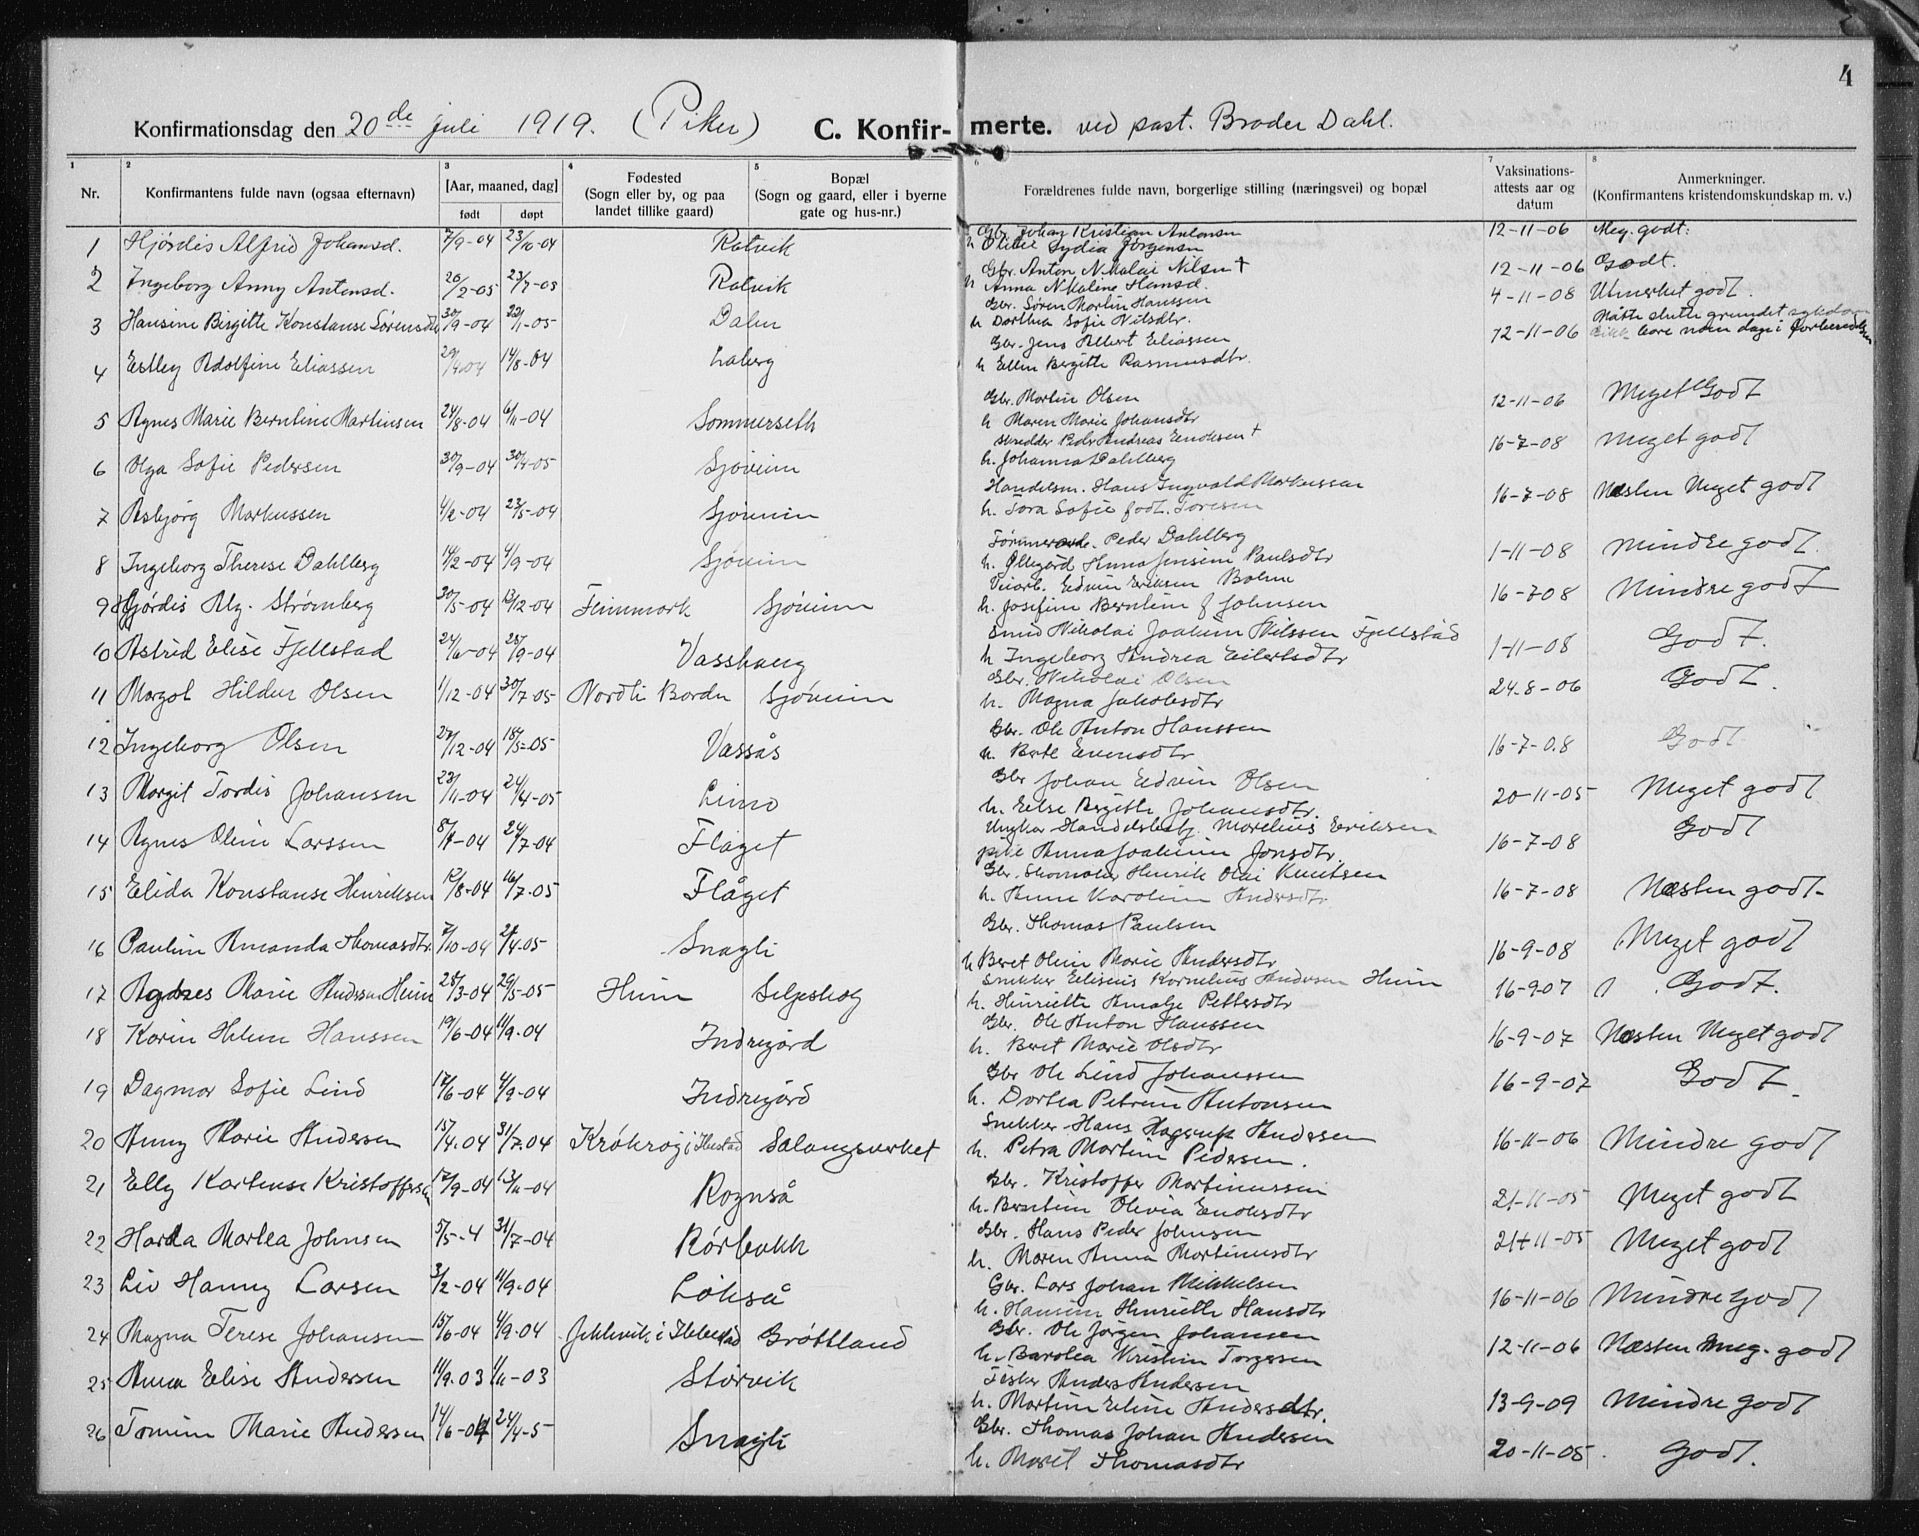 4
Konfirmationsdag den 20de juli 1919. (Piker) C. Konfirmerte. ved past. Broder Dahl.
1 2 3 4 5 6 7 8
Nr. | Konfirmantens fulde navn (ogsaa efternavn) | [Aar, maaned, dag] født døpt | Fødested (Sogn eller by, og paa landet tillike gaard) | Bopæl (Sogn og gaard, eller i byerne gate og hus-nr.) | Forældrenes fulde navn, borgerlige stilling (næringsvei) og bopæl | Vaksinations-attests aar og datum | Anmerkninger. (Konfirmantens kristendomskundskap m. v.)
1 Hjördis Alfrid Johansd. 7/9-04 23/10-04 Rotvik Gbr. Johan Kristian Antonsen 12-11-06 Meg. godt.
h Lydia Jörgensen
2 Ingeborg Anny Antonsd. 20/2-05 23/7-05 Rotvik Gbr. Anton Nikolai Nilsen † 12-11-06 Godt.
h Anna Nikoline Hansd.
3 Hansine Birgitte Konstanse Sørensdtr 30/9-04 22/1-05 Dalen Gbr. Sören Martin Hanssen 4-11-08 Utmerket godt.
h Dorthea Sofie Nilsdtr.
4 Estley Adolfine Eliassen 29/4-04 14/8-04 Laberg Gbr. Jens Albert Eliassen 12-11-06 Måtte slutte grundet sykdom
bare noen dage i forberedelsen
h Ellen Bergitte Rasmusdtr.
5 Agnes Marie Berntine Martinsen 24/8-04 6/11-04 Sommerseth Gbr. Martin Olsen 12-11-06 Meget Godt
h Maren Marie Johansdtr
6 Olga Sofie Pedersen 30/9-04 30/4-05 Sjöveien skredder Peder Andreas Enoksen † 16-7-08 Meget godt
h. Johanna Dahlberg
7 Asbjörg Markussen 4/2-04 23/5-04 Sjöveien Handelsm. Hans Ingvald Markussen 16-7-08 Næsten Meget godt
h. Tora Sofie født Toresen
8 Ingeborg Therese Dahlberg 14/2-04 4/9-04 Sjöveien Peder Dahlberg 1-11-08 Mindre godt.
h. Ollegård Anna Jensine Paulsdtr
9 Hjördis Alg. Strömberg 30/5-04 13/12-04 Finnmark Sjöveien Veiarb. Edvin Eriksen 16-7-08 Mindre godt
h. Josefine Berntine f Johnsen
10 Astrid Elise Fjellstad 24/6-04 25/9-04 Vasshaug Smed Nikolai Joakim Nilssen Fjellstad 1-11-08 Godt.
h Ingeborg Andrea Eilertsdtr
11 Margot Hildur Olsen 1/12-04 30/7-05 Nordli Bardu Sjöveien Gbr. Nikolai Olsen 24-8-06 Godt.
h. Magna Jakobsdtr
12 Ingeborg Olsen 27/12-04 18/5-05 Vassås Gbr. Ole Anton Hanssen 16-7-08 Godt
h Berte Evensdtr
13 Margit Tordis Johansen 23/11-04 24/4-05 Limo Gbr Johan Edvin Olsen 20-11-05 Meget godt
h. Else Bergitte Johansdtr.
14 Agnes Oline Larssen 8/4-04 24/7-04 Flåget Ungkar Handelsbetj. Morelius Eriksen 16-7-08 Godt
pike Anna Joakime Jonsdtr.
15 Elida Konstanse Henriksen 12/8-04 16/7-05 Flåget Gbr. Skomaker Henrik Olai Knutsen 16-7-08 Næsten godt-
h. Anne Karoline Andersdtr
16 Pauline Amanda Thomasdtr. 2/10-04 24/4-05 Snagli Gbr. Thomas Paulsen 16-9-08 Meget godt
h Beret Oline Marie Andersdtr
17 Agnes Marie Andersen Heim 28/3-04 29/5-05 Heim Seljeskog Snikker Elisius Kornelius Andersen Heim 16-9-07 Godt.
h. Henriette Amalje Pettersdtr
18 Karen Helene Hanssen 19/6-04 11/9-04 Indregård Gbr. Ole Anton Hanssen 16-9-07 Næsten Meget godt
h. Beret Marie Olsdtr
19 Dagmar Sofie Lind 12/6-04 4/9-04 Indregård Gbr Ole Lind Johanssen 16-9-07 Godt.
h. Dortea Petrine Antonsen
20 Anny Marie Andersen 15/4-04 31/7-04 Krökrøg i Ibestad Salangsverket Snekker Hans Hagerup Andersen 16-11-06 Mindre godt
h. Petra Martine Pedersen.
21 Elly Kartense Kristoffersen 12/9-04 13/11-04 Rognså Gbr. Kristoffer Martinussen 21-11-05 Meget godt
h. Berntine Olivia Enoksdtr
22 Harda Martea Johnsen 5/5-4 31/7-04 Rörbakk Gbr. Hans Peder Johnsen 21-11-05 Meget godt
h. Maren Anna Martinusdtr
23 Liv Hanny Larsen 3/2-04 11/9-04 Lökså Gbr. Lars Johan Mikkelsen 16-11-06 Mindre godt
h. Hansine Henriette Hansdtr
24 Magna Terese Johansen 15/6-04 4/9-04 Jektevik i Ibbestad Gröttland Gbr. Ole Jörgen Johansen 12-11-06 Næsten meg. godt
h. Barolea Kristine Torgersen
25 Anna Elise Andersen 11/9-03 1/11-03 Storvik Fisker Anders Andersen 13-9-09 Mindre godt
h. Martine Eline Andersdtr.
26 Tomine Marie Andersen 14/6-04 24/4-5 Snagli Gbr. Thomas Johan Andersen 20-11-05 Godt.
h. Marit Thomasdtr